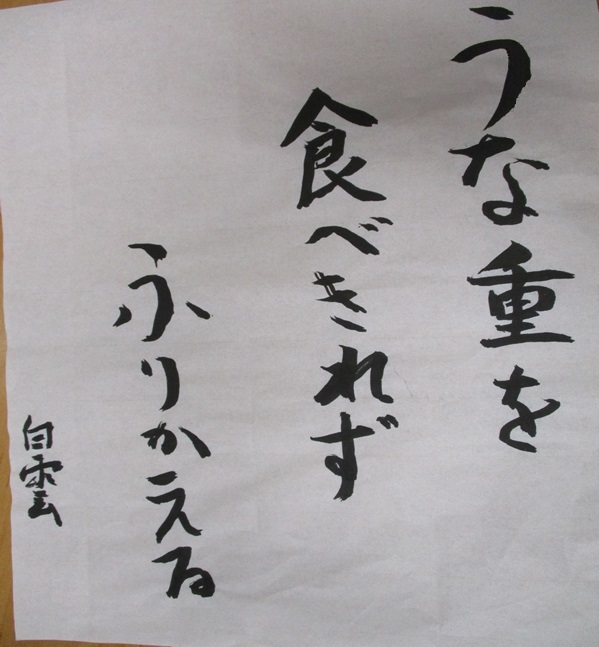 うな重を
食べきれず
ふりかえる
白雲